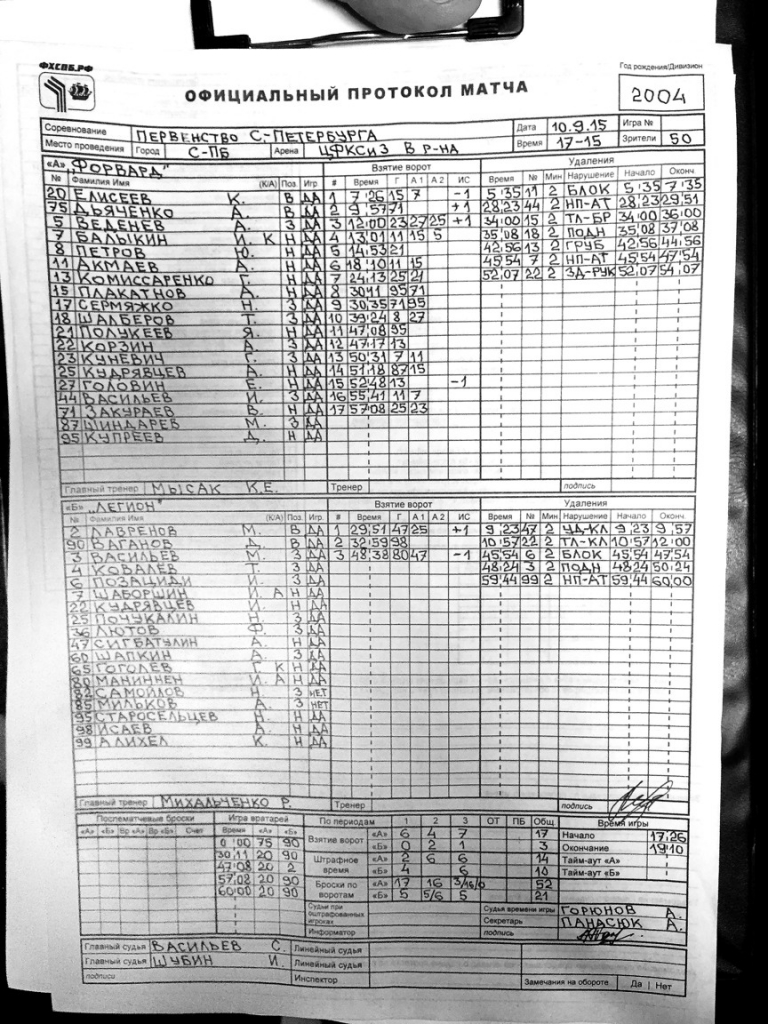 ФХСПБ.РФ
ОФИЦИАЛЬНЫЙ ПРОТОКОЛ МАТЧА
Год рождения/Дивизион
2004
Соревнование ПЕРВЕНСТВО С.-ПЕТЕРБУРГА Дата 10.9.15 Игра №
Место проведения Город С-ПБ Арена ЦФКСиЗ В Р-НА Время 17-15 Зрители 50
«А» „ФОРВАРД" Взятие ворот Удаления
№ Фамилия Имя (К/А) Поз. Игр. # Время Г А1 А2 ИС Время № Мин Нарушение Начало Оконч.
20 ЕЛИСЕЕВ К. В ДА 1 7:26 15 7 -1 5:35 11 2 БЛОК 5:35 7:35
75 ДЬЯЧЕНКО А. В ДА 2 9:57 71 +1 28:23 44 2 НП-АТ 28:23 29:51
5 ВЕДЕНЕВ А. З ДА 3 12:00 23 27 25 +1 34:00 15 2 ТЛ-БР 34:00 36:00
7 БАЛЫКИН И. К Н ДА 4 13:01 11 15 5 35:08 18 2 ПОДН 35:08 37:08
8 ПЕТРОВ Ю. Н ДА 5 14:53 21 42:56 13 2 ГРУБ 42:56 44:56
11 АКМАЕВ А. Н ДА 6 18:10 11 15 45:54 7 2 НП-АТ 45:54 47:54
13 КОМИССАРЕНКО Г. Н ДА 7 24:13 25 21 52:07 22 2 ЗД-РУК 52:07 54:07
15 ПЛАКАТНОВ А. Н ДА 8 30:11 95 71
17 СЕРМЯЖКО Н. З ДА 9 30:35 71 95
18 ШАЛБЕРОВ Т. З ДА 10 39:24 8 27
21 ПОЛУКЕЕВ Я. Н ДА 11 47:08 95
22 КОРЗИН А. З ДА 12 47:17 13
23 КУНЕВИЧ Г. З ДА 13 50:31 7 11
25 КУДРЯВЦЕВ А. Н ДА 14 51:18 87 15
27 ГОЛОВИН Е. Н ДА 15 52:48 13 -1
44 ВАСИЛЬЕВ И. З ДА 16 55:41 11 7
71 ЗАКУРАЕВ В. Н ДА 17 57:08 25 23
87 ШИНДАРЕВ М. З ДА
95 КУПРЕЕВ Д. Н ДА
Главный тренер МЫСАК К.Е. Тренер подпись
«Б» „ЛЕГИОН" Взятие ворот Удаления
№ Фамилия Имя (К/А) Поз. Игр. # Время Г А1 А2 ИС Время № Мин Нарушение Начало Оконч.
2 ЛАВРЕНОВ М. В ДА 1 29:51 47 25 +1 9:23 47 2 УД-КЛ 9:23 9:57
90 ВАГАНОВ Д. В ДА 2 32:59 98 10:57 22 2 ТЛ-КЛ 10:57 12:00
3 ВАСИЛЬЕВ М. З ДА 3 48:38 80 47 -1 45:54 6 2 БЛОК 45:54 47:54
4 КОВАЛЕВ Т. З ДА 48:24 3 2 ПОДН 48:24 50:24
6 ПОЗАЦИДИ И. З ДА 59:44 99 2 НП-АТ 59:44 60:00
7 ШАБОРШИН И. А Н ДА
22 КУДРЯВЦЕВ И. Н ДА
25 ПОЧУКАЛИН Н. З ДА
36 ЛЮТОВ Ф. З ДА
47 СИГБАТУЛИН А. Н ДА
60 ШАПКИН А. З ДА
65 ГОГОЛЕВ Г. К Н ДА
80 МАНИННЕН И. А Н ДА
82 САМОЙЛОВ Н. З НЕТ
85 МИЛЬКОВ А. З НЕТ
95 СТАРОСЕЛЬЦЕВ Н. Н ДА
98 ИСАЕВ А. Н ДА
99 АЛИХЕЛ К. Н ДА
Главный тренер МИХАЛЬЧЕНКО Р. Тренер подпись
Послематчевые броски Игра вратарей По периодам 1 2 3 ОТ ПБ Общ Время игры
«А» «Б» Вр «А» Вр «Б» Счет Время «А» «Б» Взятие ворот «А» 6 4 7 17 Начало 17:26
0:00 75 90 «Б» 0 2 1 3 Окончание 19:10
30:11 20 90 Штрафное время «А» 2 6 6 14 Тайм-аут «А»
47:08 20 2 «Б» 4 6 10 Тайм-аут «Б»
57:08 20 90 Броски по воротам «А» 17 16 3/16/0 52
60:00 20 90 «Б» 5 5/6 5 21
Судьи при оштрафованных игроках Судья времени игры ГОРЮНОВ А.
Секретарь ПАНАСЮК А.
Информатор подпись
Главный судья ВАСИЛЬЕВ С. Линейный судья
Главный судья ШУБИН И. Линейный судья
подписи Инспектор Замечания на обороте Да Нет